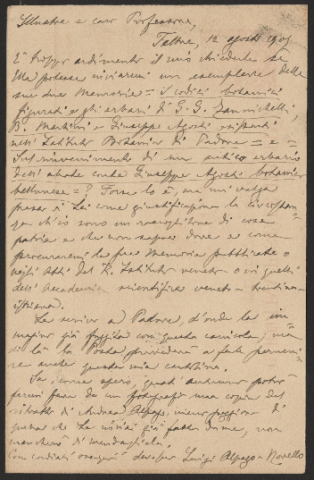 Illustre e caro Professore,
Feltre, 12 agosto 1905
È troppo ardimento il mio chiederle se
Ella potesse inviarmi un esemplare delle
sue due Memorie = I codici botanici
figurati e gli erbari di G. G. Zannichelli,
B. Martini e Giuseppe Agosti esistenti
nell'Istituto Botanico di Padova = e =
Sul rinvenimento di un antico erbario
dell'abate conte Giuseppe Agosti botanico
bellunese = ? Forse lo è, ma mi valga
presso di Lei come giustificazione la circostan-
za ch'io sono un raccoglitore di cose
patrie e che non saprei dove e come
procurarmi le due Memorie pubblicate o
negli Atti del R. Istituto veneto o in quelli
dell'Accademia scientifica veneto-trentino-
istriana.
Le scrivo a Padova, d'onde La im-
magino già con questa canicola; ma
di là la Posta provvederà a farle perveni-
re anche questa mia cartolina.
La come spero, quest'autunno potrò
farmi fare da un fotografo una copia del
ritratto di Andrea Alpago,
non
mancherò di mandargliela.
Con cordiali ossequi devmo per Luigi Alpago-Novello